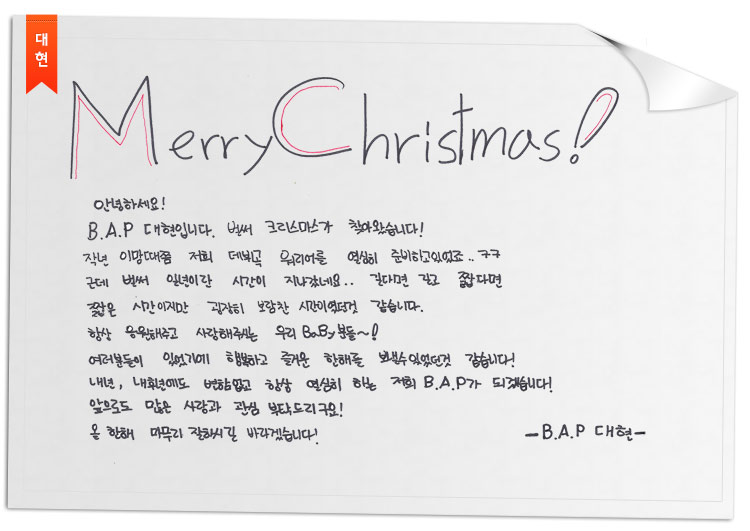 대
현
Merry Christmas!
안녕하세요!
B.A.P 대현입니다. 벌써 크리스마스가 찾아왔습니다!
작년 이맘때쯤 저희 데뷔곡 워리어를 열심히 준비하고있었죠..ㅋㅋ
근데 벌써 일년이란 시간이 지나갔네요.. 길다면 길고 짧다면
짧은 시간이지만 굉장히 보람찬 시간이었던것 같습니다.
항상 응원해주고 사랑해주시는 우리 BaBy분들~!
여러분들이 있었기에 행복하고 즐거운 한해를 보낼수있었던것 같습니다!
내년, 내후년에도 변함없고 항상 열심히 하는 저희 B.A.P가 되겠습니다!
앞으로도 많은 사랑과 관심 부탁드리구요!
올 한해 마무리 잘하시길 바라겠습니다!
-B.A.P 대현-